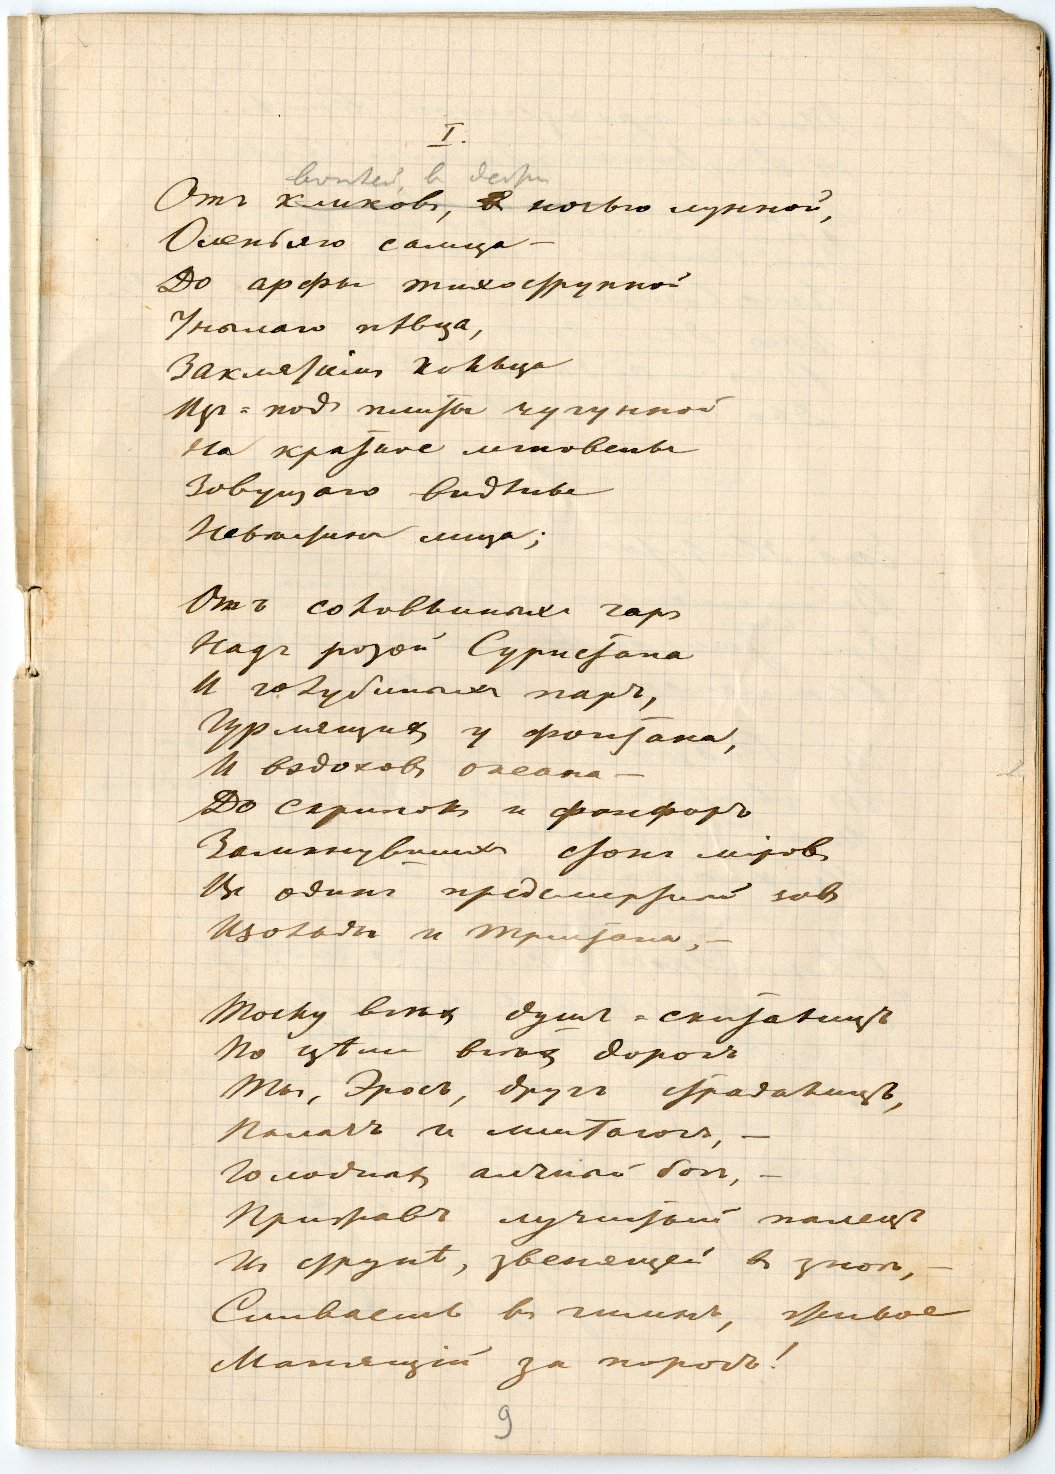 I.
воплей, в дебри
Отъ кликовъ, в ночью лунной,
Оленьяго самца —
До арфы тихострунной
Унылаго пѣвца,
Заклятіемъ кольца
Изъ-подъ плиты чугунной
На краткое мгновенье
Зовущаго видѣнье
Невѣстина лица;
Отъ соловьиныхъ чаръ
Надъ розой Суристана
И голубиныхъ паръ,
Гурлящихъ у фонтана,
И вздоховъ океана —
До скрипокъ и фанфаръ
Замкнувшихъ стонъ міровъ
Въ одинъ предсмертный зовъ
Изольды и Тристана, —
Тоску всѣхъ душъ-скиталицъ
По цѣли всѣхъ дорогъ
Ты, Эросъ, другъ страдалицъ,
Палачъ и мистагогъ, —
Голодныхъ алчный богъ, —
Прижавъ лучистый палецъ
Къ струнѣ, звенящей въ зноѣ, —
Сливаешь въ гимнъ, живое
Манящій за порогъ!
9